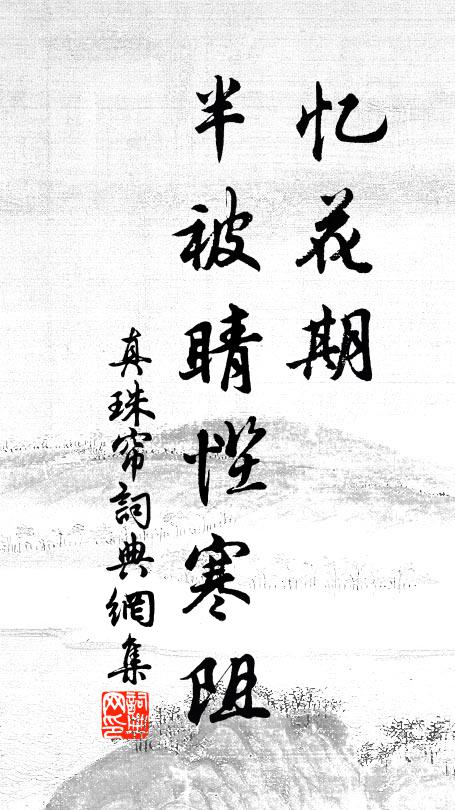 忆花期
半被晴悭寒阻
真珠帘詞典網集
詞典
网印